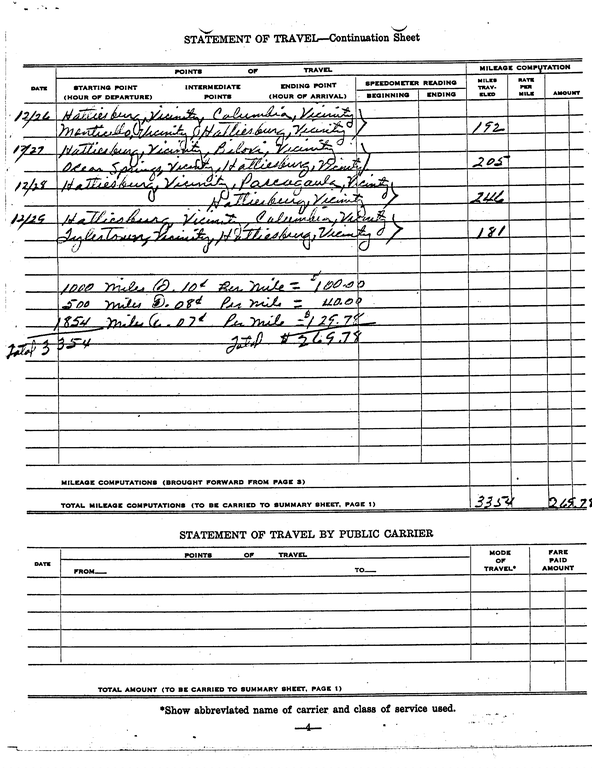 STATEMENT OF TRAVEL—Continuation Sheet
POINTS OF TRAVEL MILEAGE COMPUTATION
DATE STARTING POINT (HOUR OF DEPARTURE) INTERMEDIATE POINTS ENDING POINT (HOUR OF ARRIVAL) SPEEDOMETER READING BEGINNING ENDING MILES TRAV- ELED RATE PER MILE AMOUNT
12/26 Hattiesburg, Vicinity, Columbia, Vicinity
Monticello, Vicinity, Hattiesburg, Vicinity 192
12/27 Hattiesburg, Vicinity, Biloxi, Vicinity
Ocean Springs, Vicinity, Hattiesburg, Vicinity 205
12/28 Hattiesburg, Vicinity, Pascagoula, Vicinity
Hattiesburg, Vicinity 246
12/29 Hattiesburg, Vicinity, Columbia, Vicinity
Tylertown, Vicinity, Hattiesburg, Vicinity 181
1000 miles @ .10¢ Per mile = $100.00
500 miles @ .08¢ Per mile = 40.00
1854 miles @ .07¢ Per mile = $129.78
Total 3354 Total $269.78
MILEAGE COMPUTATIONS (BROUGHT FORWARD FROM PAGE 3)
TOTAL MILEAGE COMPUTATIONS (TO BE CARRIED TO SUMMARY SHEET, PAGE 1) 3354 269.78
STATEMENT OF TRAVEL BY PUBLIC CARRIER
DATE POINTS OF TRAVEL MODE OF TRAVEL* FARE PAID AMOUNT
FROM— TO—
TOTAL AMOUNT (TO BE CARRIED TO SUMMARY SHEET, PAGE 1)
*Show abbreviated name of carrier and class of service used.
—4—